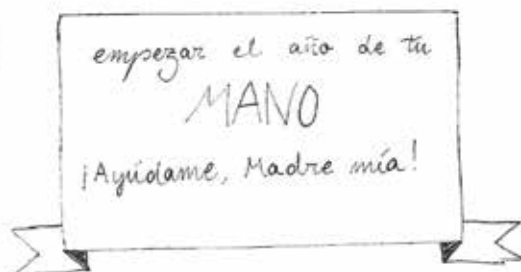 empezar el año de tu
MANO
¡Ayúdame, Madre mía!